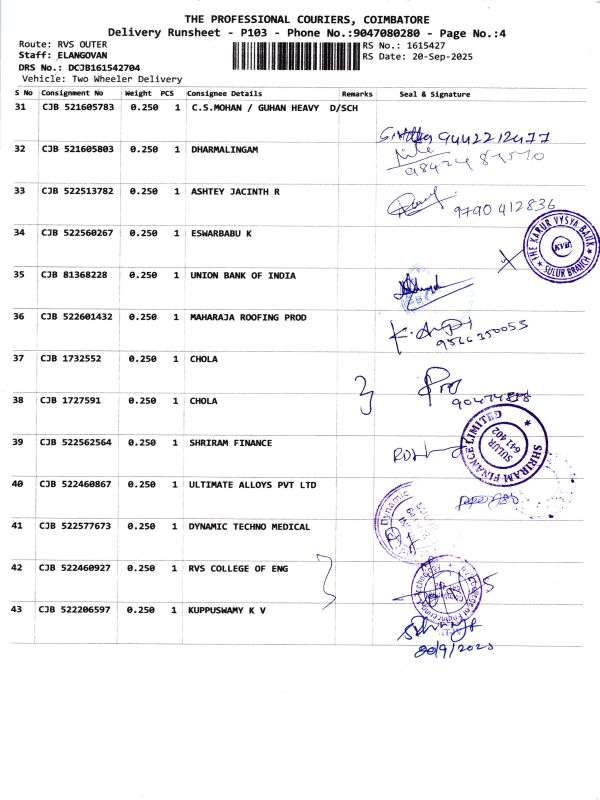 THE PROFESSIONAL COURIERS, COIMBATORE
Delivery Runsheet - P103 - Phone No.:9047080280 - Page No.:4
Route: RVS OUTER RS No.: 1615427
Staff: ELANGOVAN RS Date: 20-Sep-2025
DRS No.: DCJB161542704
Vehicle: Two Wheeler Delivery
S No Consignment No Weight PCS Consignee Details Remarks Seal & Signature
31 CJB 521605783 0.250 1 C.S.MOHAN / GUHAN HEAVY D/SCH
9442212477
32 CJB 521605803 0.250 1 DHARMALINGAM
33 CJB 522513782 0.250 1 ASHTEY JACINTH R
9790412836
34 CJB 522560267 0.250 1 ESWARBABU K
THE KARUR VYSYA BANK
KVB
SULUR BRANCH
35 CJB 81368228 0.250 1 UNION BANK OF INDIA
36 CJB 522601432 0.250 1 MAHARAJA ROOFING PROD
9566350055
37 CJB 1732552 0.250 1 CHOLA
38 CJB 1727591 0.250 1 CHOLA
39 CJB 522562564 0.250 1 SHRIRAM FINANCE
SHRIRAM FINANCE LIMITED
SULUR
641 402
40 CJB 522460867 0.250 1 ULTIMATE ALLOYS PVT LTD
41 CJB 522577673 0.250 1 DYNAMIC TECHNO MEDICAL
Dynamic
42 CJB 522460927 0.250 1 RVS COLLEGE OF ENG
43 CJB 522206597 0.250 1 KUPPUSWAMY K V
20/9/2025